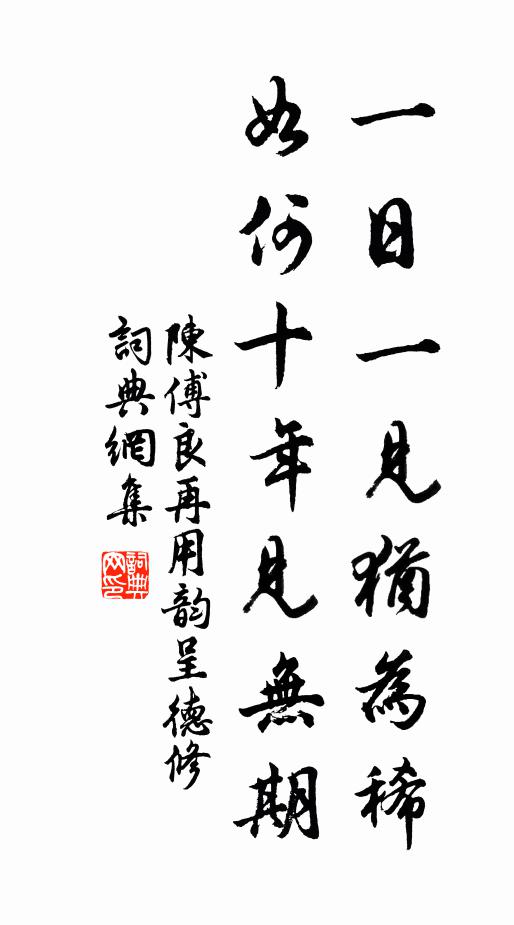 一日一見猶為稀
如何十年見無期
陳傅良再用韵呈德修
詞典網集
詞典網印